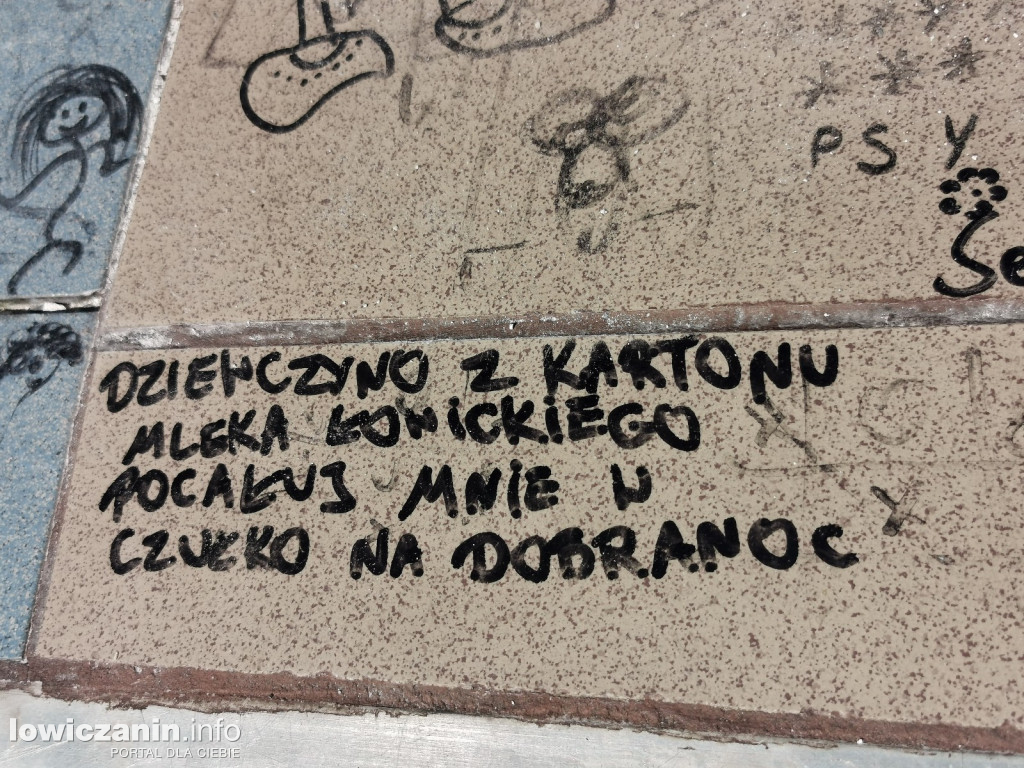 ***
PSY
DZIEWCZYNO Z KARTONU
MLEKA ŁOWICKIEGO
POCAŁUJ MNIE W
CZUŁKO NA DOBRANOC
lowiczanin.info
PORTAL DLA CIEBIE